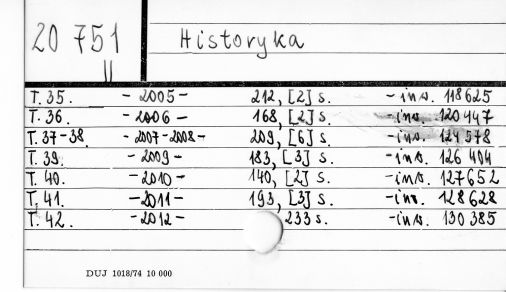 20 751 Historyka
II
T. 35. - 2005 - 212, [2] s. - inw. 118625
T. 36. - 2006 - 168, [2] s. - inw. 120447
T. 37-38. - 2007-2008 - 209, [6] s. - inw. 124578
T. 39. - 2009 - 183, [3] s. - inw. 126404
T. 40. - 2010 - 140, [2] s. - inw. 127652
T. 41. - 2011 - 193, [3] s. - inw. 128628
T. 42. - 2012 - 233 s. - inw. 130385
DUJ 1018/74 10 000